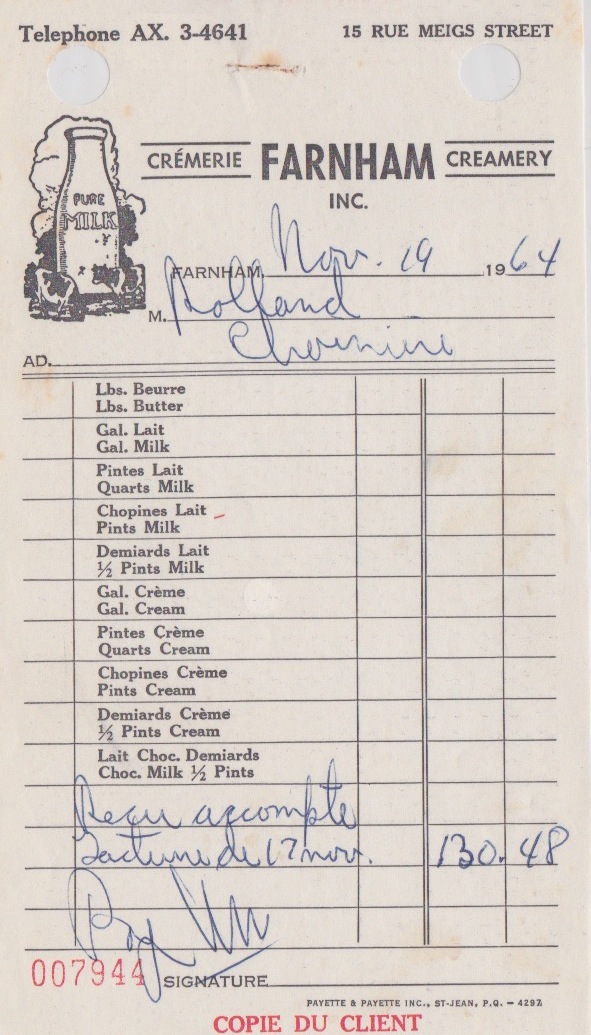 Telephone AX. 3-4641 15 RUE MEIGS STREET
PURE
MILK
CRÉMERIE FARNHAM CREAMERY
INC.
FARNHAM, Nov. 19 1964
M. Rolland
AD.
Lbs. Beurre
Lbs. Butter
Gal. Lait
Gal. Milk
Pintes Lait
Quarts Milk
Chopines Lait
Pints Milk
Demiards Lait
½ Pints Milk
Gal. Crème
Gal. Cream
Pintes Crème
Quarts Cream
Chopines Crème
Pints Cream
Demiards Crème
½ Pints Cream
Lait Choc. Demiards
Choc. Milk ½ Pints
Recu accompte
Facture de 17 nov. 130.48
007944 SIGNATURE
PAYETTE & PAYETTE INC., ST-JEAN, P.Q. — 4297
COPIE DU CLIENT